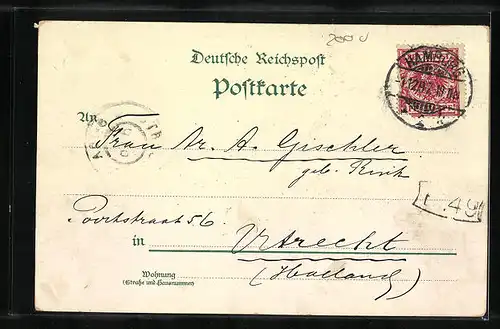 Deutsche Reichspost
Postkarte
HAMBURG
An
Frau Dr. A. Gischler
geb. Rink
49
Poortstraat 56
in Utrecht
(Holland)
Wohnung
(Straße und Hausnummer)